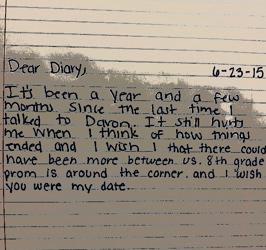 Dear Diary,
6-23-15
It's been a year and a few
months since the last time I
talked to Davon. It still hurts
me when I think of how things
ended and I wish I that there could
have been more between us. 8th grade
prom is around the corner, and I wish
you were my date.